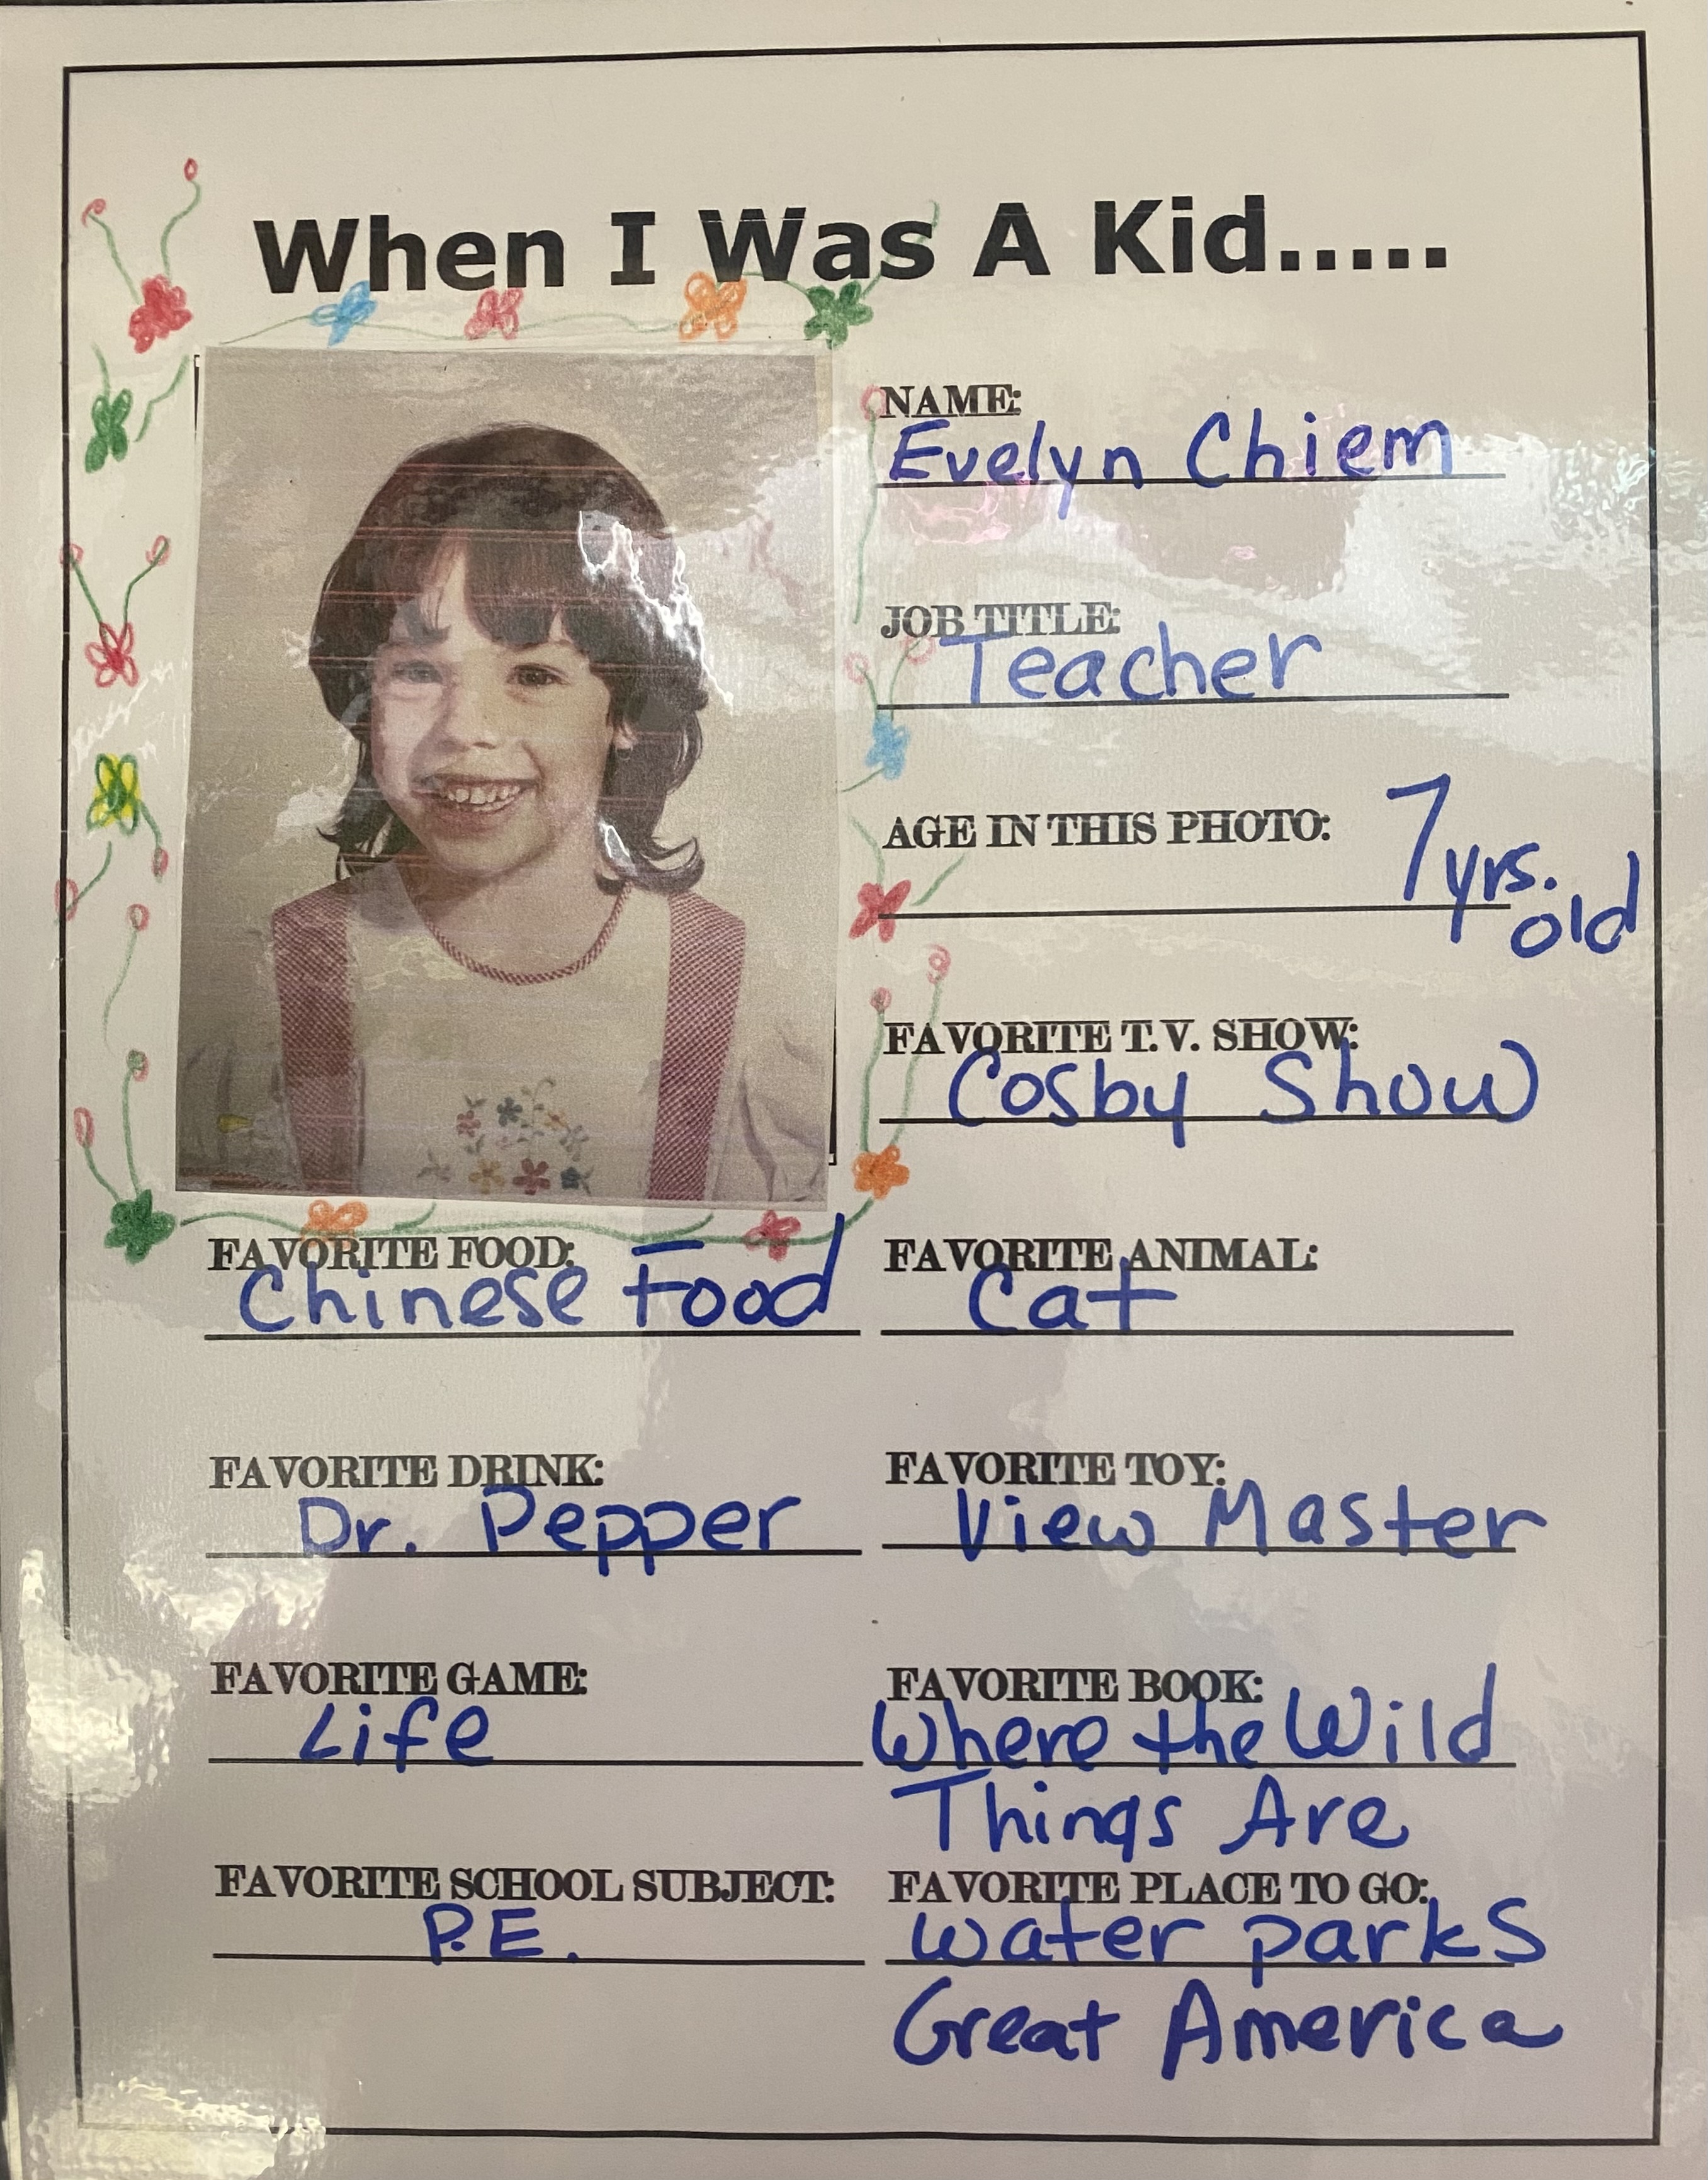 When I Was A Kid.....
NAME:
Evelyn Chiem
JOB TITLE:
Teacher
AGE IN THIS PHOTO: 7 yrs.
old
FAVORITE T.V. SHOW:
Cosby Show
FAVORITE FOOD:
Chinese Food
FAVORITE ANIMAL:
Cat
FAVORITE DRINK:
Dr. Pepper
FAVORITE TOY:
View Master
FAVORITE GAME:
Life
FAVORITE BOOK:
Where the Wild
Things Are
FAVORITE SCHOOL SUBJECT:
P.E.
FAVORITE PLACE TO GO:
water parks
Great America